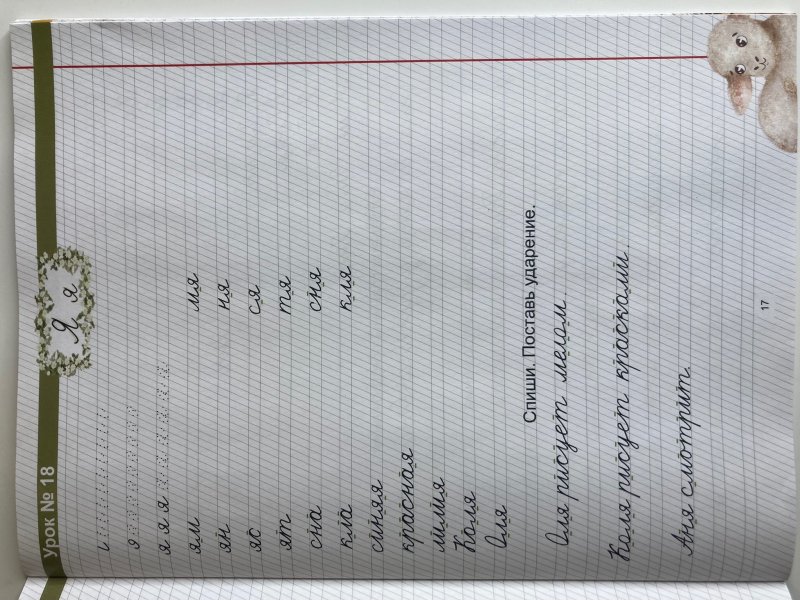 Урок № 18
Я я
я
я я я
ям мя
ян ня
яс ся
ят тя
сна сня
кла кля
синяя
красная
Коля
Оля
Спиши. Поставь ударение.
Оля рисует мелом.
Коля рисует красками.
Аня смотрит.
17